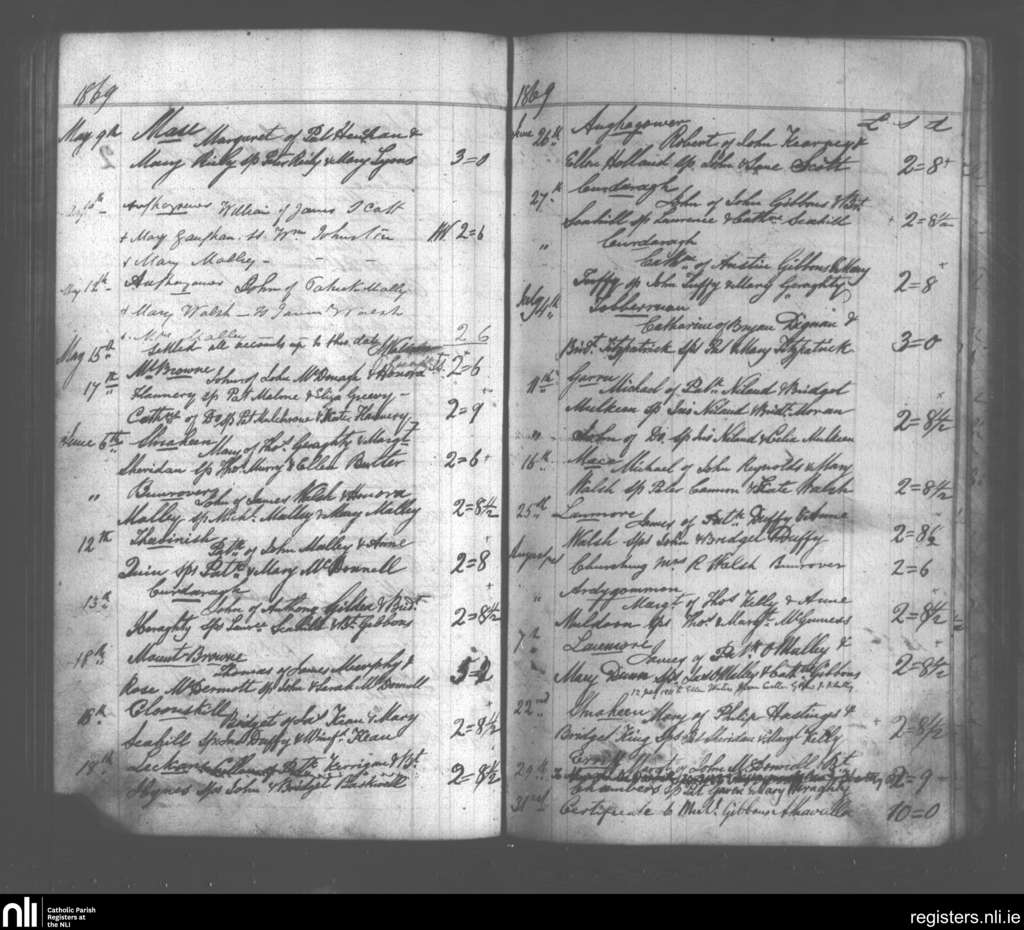 1869
May 9th Mace Margaret of Pat &
Mary Reily Sps Peter Reily & Mary Lyons 3=0
Aughagower William of James Scott
+ Mary Gaughan Ss Wm Johnston 2=6
& Mary Malley -
May 12th Aughagower John of Patrick Malley
& Mary Walsh - Ss James Walsh
2 6
May 15th Settled all accounts up to this date
Mt Browne John of John McDonagh & Honora 2=6
17th Flannery Sp Patt Malone & Eliza
Cathe of Do Sps Pat Mulchrone & Kate Flannery 2=9
June 6th Shraheen Mary of Thos Geraghty & Margt
Sheridan Sps Thos Murry & Ellen Butler 2=6
" Bunrover John of James Walsh & Honora
Malley Sp Michl Malley & Mary Malley 2=8 1/2
12th
Pattk of John Malley & Anne
Quin Sps Patk & Mary McDonnell 2=8
13th Curdaragh
John of Anthony & Bidt
Heraghty Sps Lawrce Seahill & Bt Gibbons 2=8 1/2
18th Mount Browne
Thomas of James Murphy &
Rose McDermott Sp John & Sarah McDonnell
18th Cloonskill Bridget of Jas Kean & Mary
Seahill Sp Jas Duffy & Winft Kean 2=8 1/2
19th of Patk Kerrigan & Bt
Hynes Sps John & Bridget 2=8 1/2
1869
£ s d
June 26th Aughagower
Robert of John Kearney &
Ellen Holland Sp John & Jane Scott 2=8
27th Curdaragh
John of John Gibbons & Bt
Seahill Sp Laurence & Cathne Seahill 2=8 1/2
" Curdaragh
Cathne of Austin Gibbons & Mary
Tuffy Sp John Tuffy & Mary Geraghty 2=8
July 4th Tobberrooan
Catharine of Bryan Dignan &
Bidt Fitzpatrick Sps Pat & Mary Fitzpatrick 3=0
11th Garra Michael of Patk Niland & Bridget
Mulkeen Sp Jas Niland & Bidt Moran 2=8 1/2
" John of Do Sp Jas Niland & Celia Mulkeen
16th Mace Michael of John Reynolds & Mary
Walsh Sp Peter Cannon & Kate Walsh 2=8 1/2
25th Lanmore James of Patk Duffy & Anne
Walsh Sps John & Bridget Duffy 2=8 1/2
August 1st Churching Mrs R Walsh Bunrover 2=6
" Ardygommon
Margt of Thos Kelly & Anne
Muldoon Sps Thos & Margt McGuiness 2=8 1/2
7th Lanmore
James of Patk O'Malley &
Mary Dunn Sps Jas O'Malley & Cathe Gibbons 2=8 1/2
22nd Shraheen Mary of Philip Hastings &
Bridget King Sps Pat Sheridan & Margt Kelly 2=8 1/2
29th of John McDonnell Bt
Chambers Sp Pat Gavin & Mary Heraghty 2=9
31st Certificate to Michl Gibbons 10=0
nli
Catholic Parish
Registers at
the NLI
registers.nli.ie